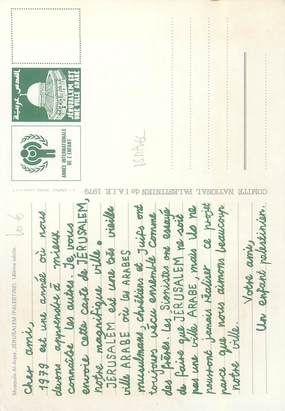 JERUSALEM (PALESTINE)
Cher ami,
1979 est une année où nous
devons apprendre à mieux
connaître les autres. Je vous
envoie cette carte de JERUSALEM,
notre magnifique ville.
JERUSALEM est une très vieille
ville ARABE où les ARABES
musulmans, chrétiens et Juifs ont
toujours vécu ensemble comme
des frères. Les Sionistes ont essayé
de faire que JERUSALEM ne soit
pas une ville ARABE, mais ils ne
pourront jamais réaliser ce projet
parce que nous aimons beaucoup
notre ville.
Votre ami,
Un enfant palestinien.
COMITE NATIONAL PALESTINIEN de l'A.I.E. 1979
ANNÉE INTERNATIONALE
DE L'ENFANT
القدس عربية
JERUSALEM EST
UNE VILLE